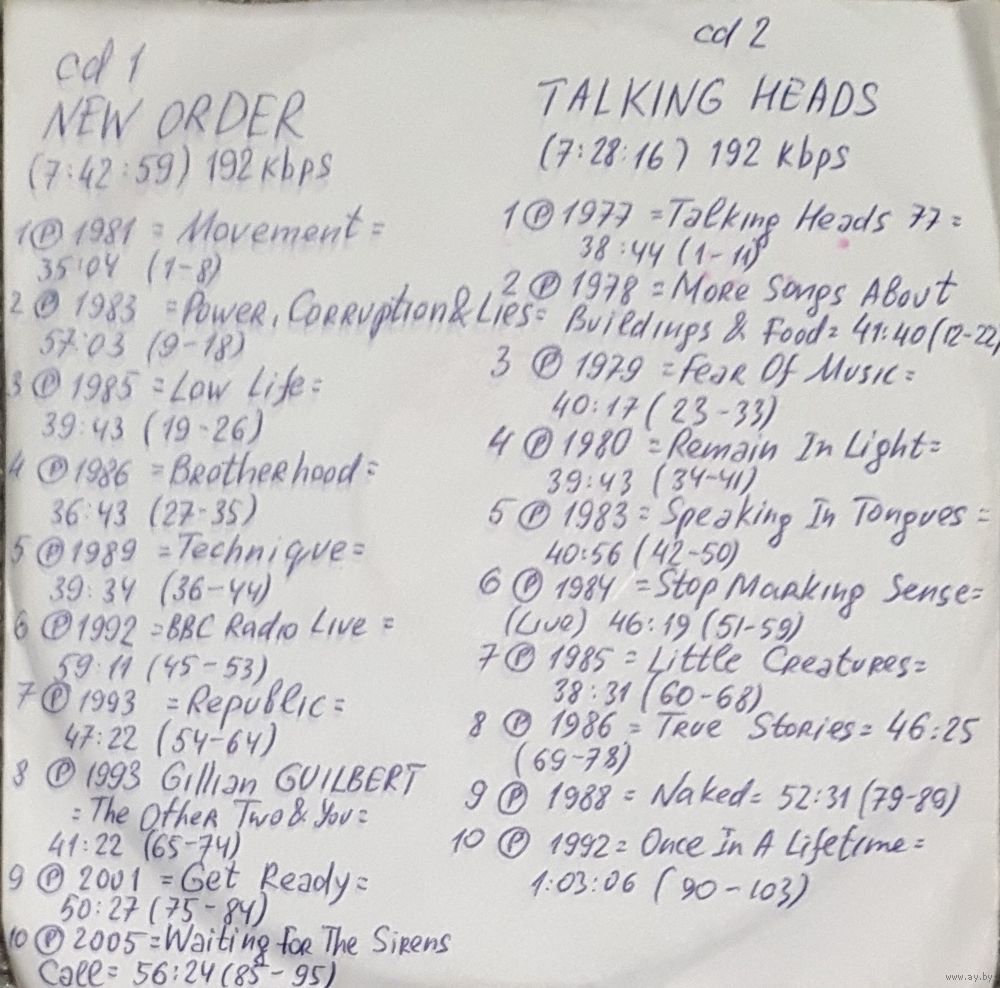 cd 1
NEW ORDER
(7:42:59) 192 kbps
1 Ⓟ 1981 = Movement =
35:04 (1-8)
2 Ⓟ 1983 = Power, Corruption & Lies=
57:03 (9-18)
3 Ⓟ 1985 = Low Life =
39:43 (19-26)
4 Ⓟ 1986 = Brotherhood =
36:43 (27-35)
5 Ⓟ 1989 = Technique =
39:34 (36-44)
6 Ⓟ 1992 = BBC Radio Live =
59:11 (45-53)
7 Ⓟ 1993 = Republic =
47:22 (54-64)
8 Ⓟ 1993 Gillian GUILBERT
= The Other Two & You =
41:22 (65-74)
9 Ⓟ 2001 = Get Ready =
50:27 (75-84)
10 Ⓟ 2005 = Waiting For The Sirens
Call = 56:24 (85-95)
cd 2
TALKING HEADS
(7:28:16) 192 kbps
1 Ⓟ 1977 = Talking Heads 77 =
38:44 (1-11)
2 Ⓟ 1978 = More Songs About
Buildings & Food = 41:40 (12-22)
3 Ⓟ 1979 = Fear Of Music =
40:17 (23-33)
4 Ⓟ 1980 = Remain In Light =
39:43 (34-41)
5 Ⓟ 1983 = Speaking In Tongues =
40:56 (42-50)
6 Ⓟ 1984 = Stop Marking Sense =
(Live) 46:19 (51-59)
7 Ⓟ 1985 = Little Creatures =
38:31 (60-68)
8 Ⓟ 1986 = True Stories = 46:25
(69-78)
9 Ⓟ 1988 = Naked = 52:31 (79-89)
10 Ⓟ 1992 = Once In A Lifetime =
1:03:06 (90-103)
www.ay.by